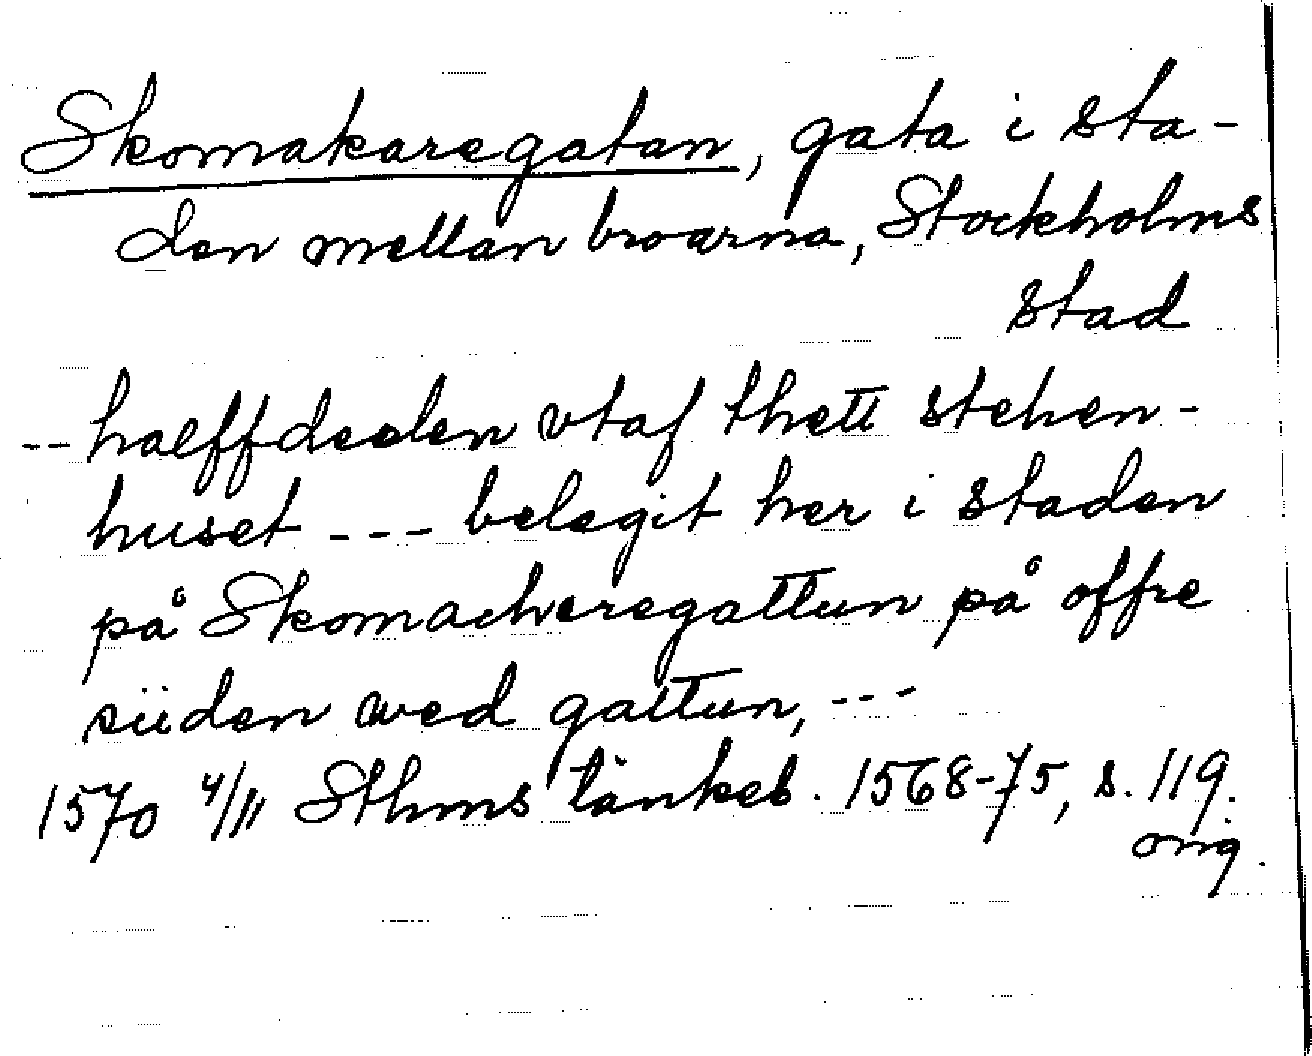 Skomakaregatan, gata i sta-
den mellan broarna, Stockholms
stad
-- halffdeelen vtaf thett stehen-
huset --- belegit her i staden
på Skomacheregattun på offre
siiden wed gattun, ---
1570 4/11 Sthms tänkeb. 1568-75, s. 119.
orig.